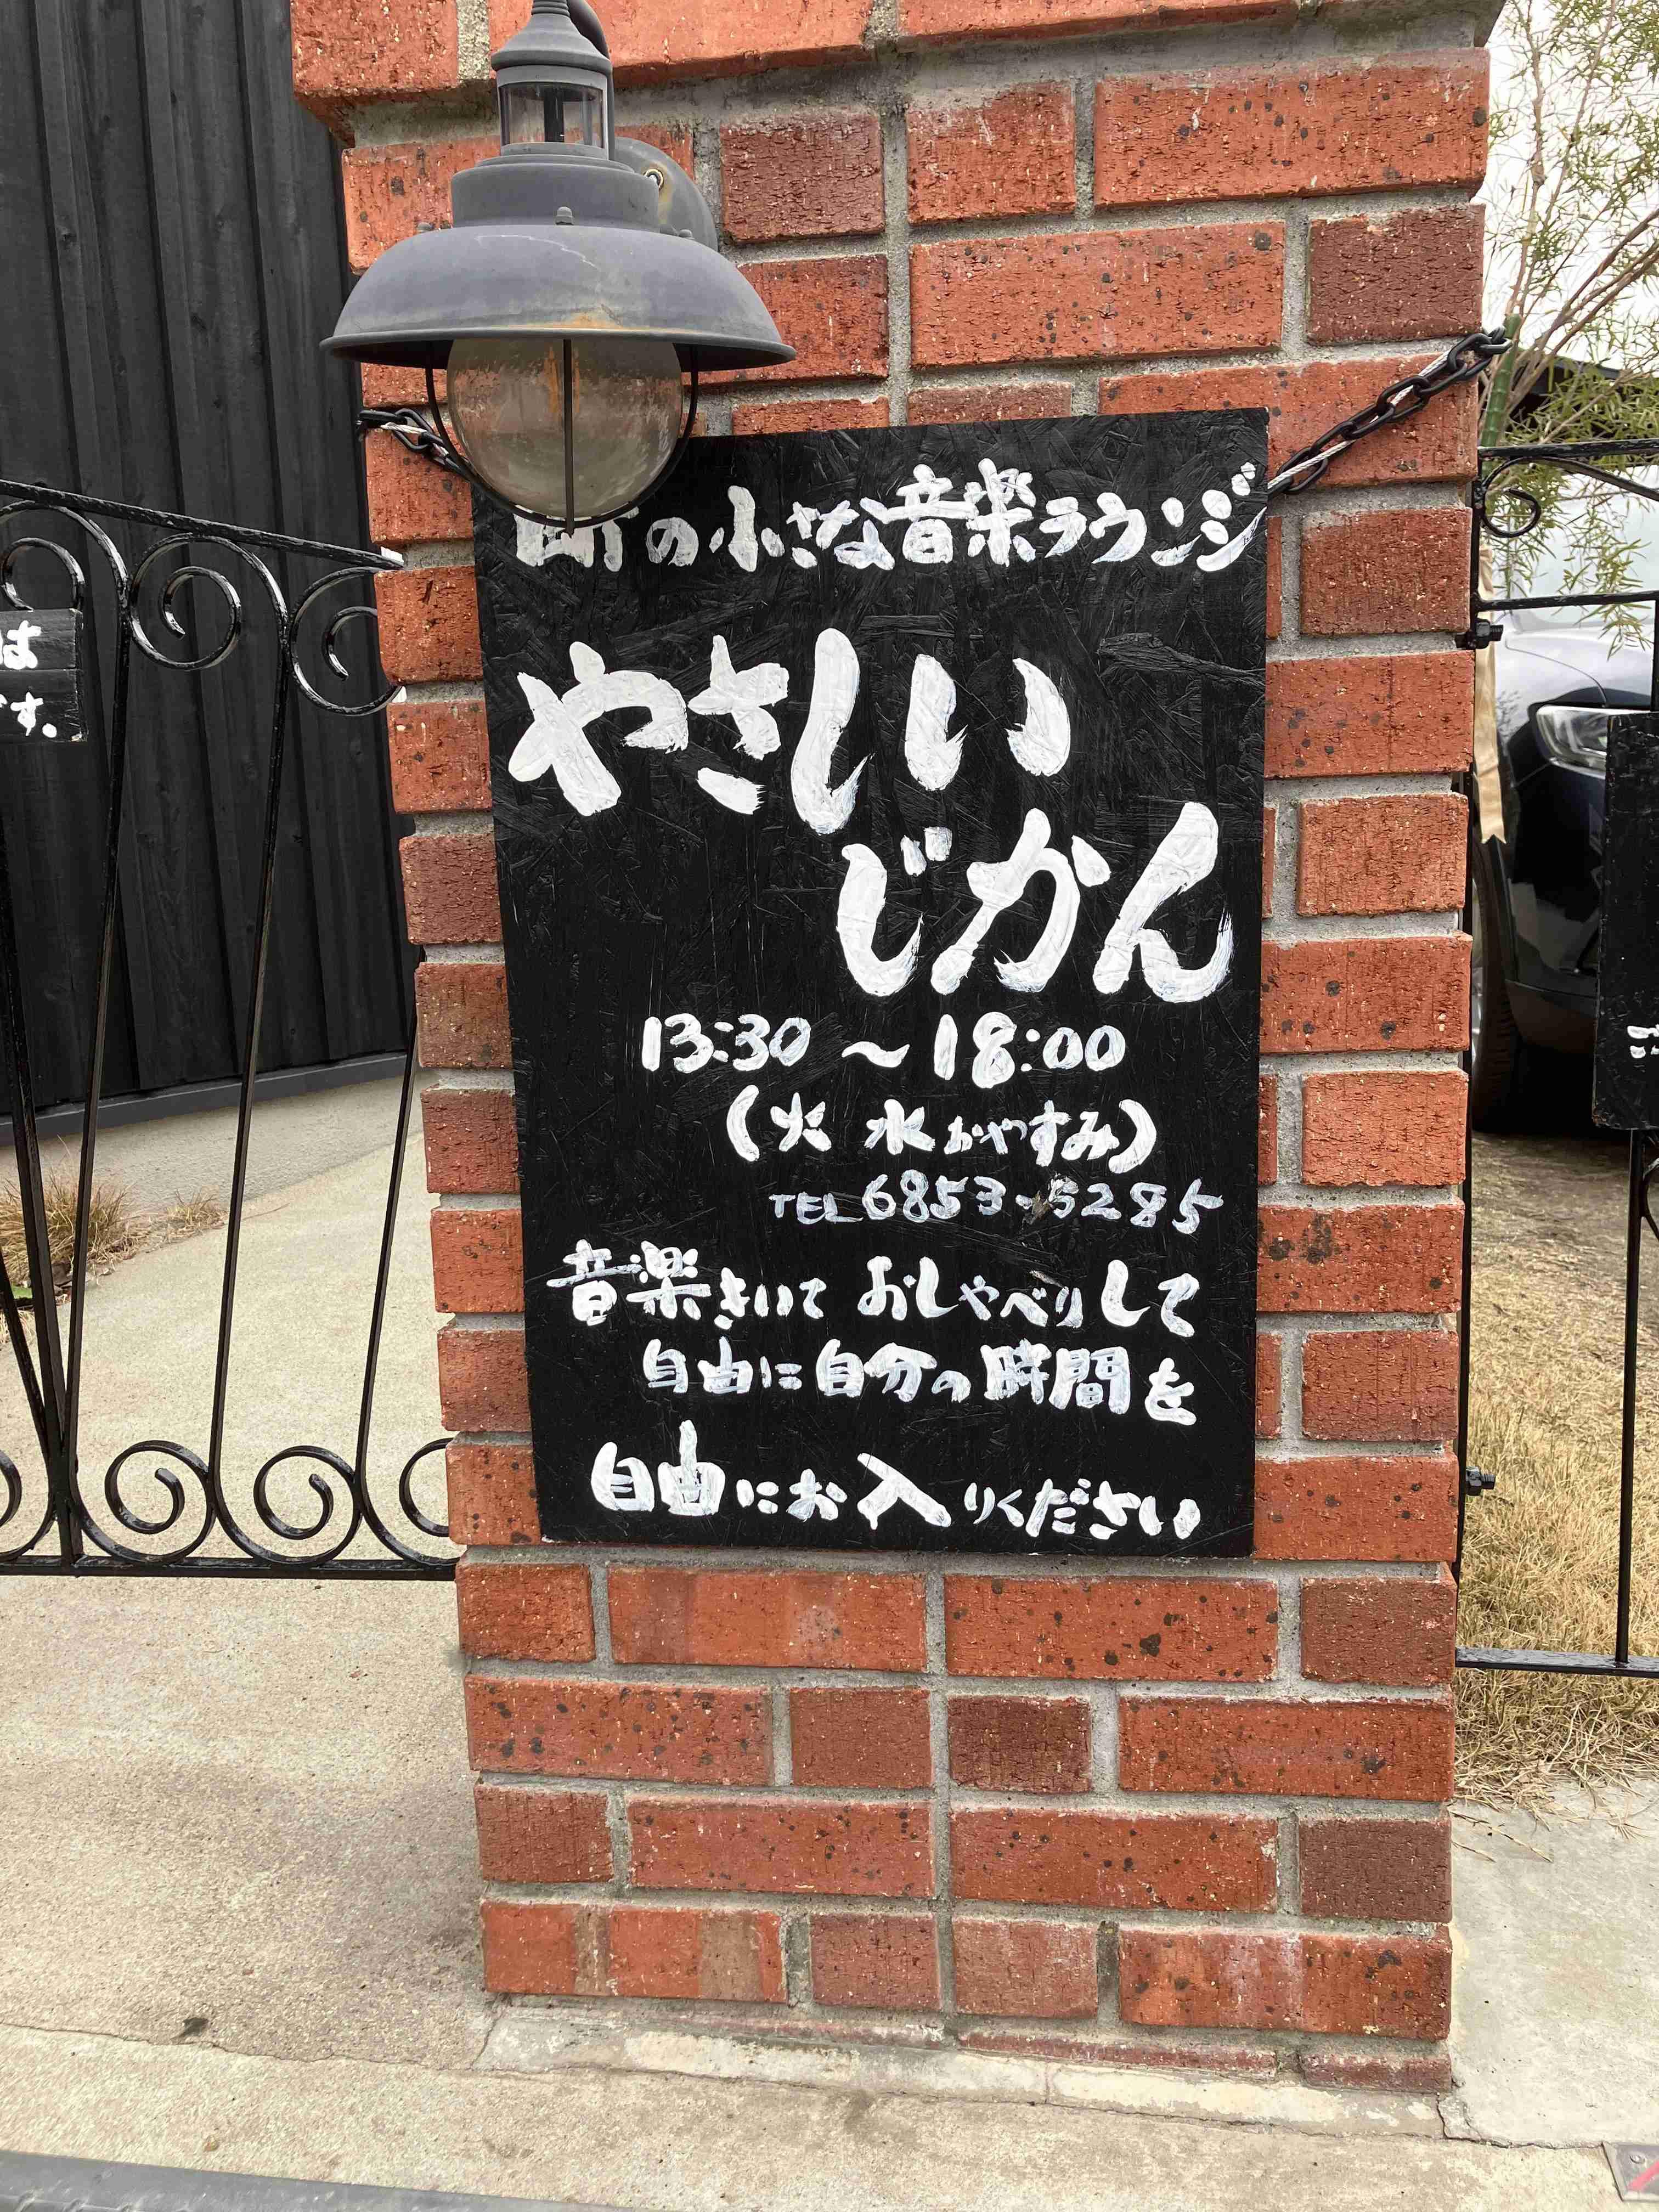 町の小さな音楽ラウンジ
やさしい
じかん
13:30～18:00
(火 水おやすみ)
TEL 6853-5285
音楽きいて おしゃべりして
自由に自分の時間を
自由にお入りください
は
す。